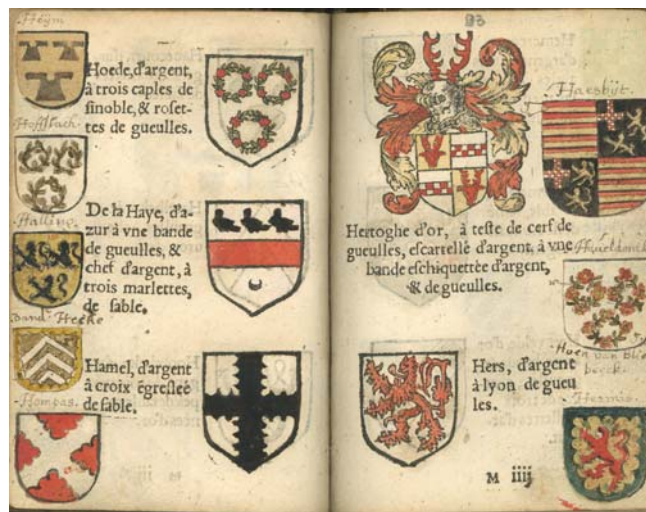 Heym
Hoede, d'argent,
à trois caples de
sinoble, & roset-
tes de gueulles.
Hofflach.
Halling
De la Haye, d'a-
zur à vne bande
de gueulles, &
chef d'argent, à
trois marlettes,
de sable.
Hamel, d'argent
à croix égresleé
de sable.
Hompas.
Haesbijt.
Hertoghe d'or, à teste de cerf de
gueulles, escartellé d'argent, à vne
bande eschiquettée d'argent,
& de gueulles.
Hoen van
Hers, d'argent
à lyon de gueu
les.
M iiij